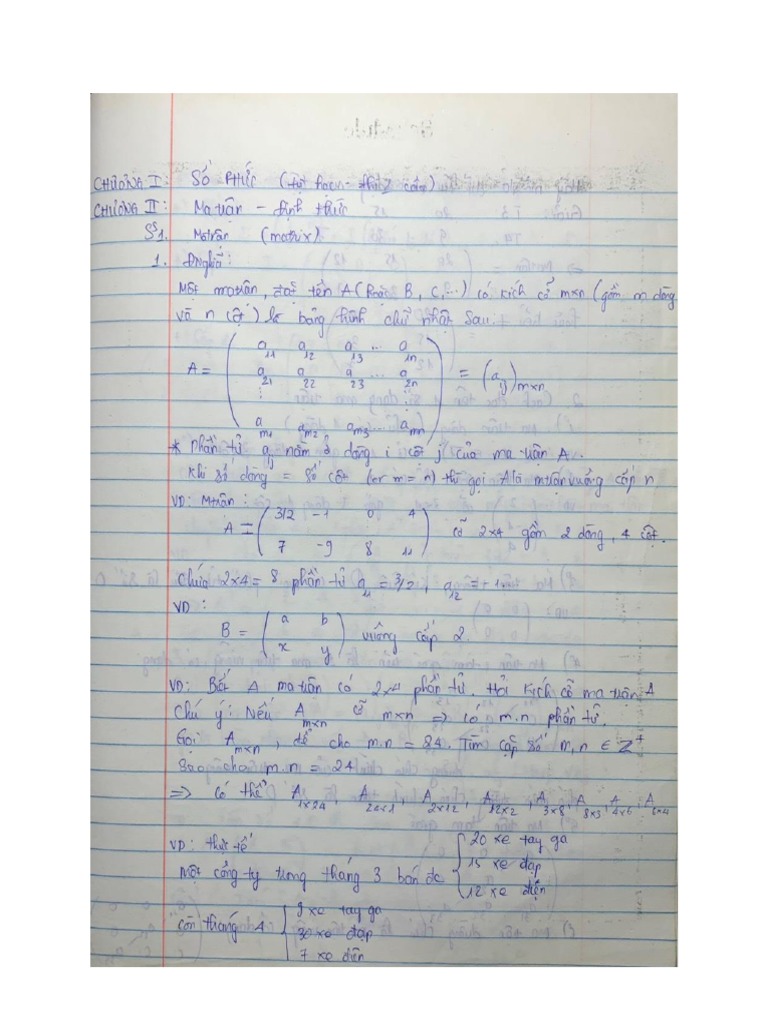 CHƯƠNG I: Số PHỨC (tự học - thầy cấm)
CHƯƠNG II: Ma trận - Định thức
§1. Matrận (matrix)
1. Đ.Nghĩa:
Một matrận, đặt tên A (hoặc B, C,...) có kích cỡ m×n (gồm m dòng
và n cột) là bảng hình chữ nhật sau:
A = ( a11 a12 a13 ... a1n
a21 a22 a23 ... a2n
⋮
am1 am2 am3 ... amn ) = (aij)m×n
* Phần tử aij nằm ở dòng i cột j của ma trận A.
Khi số dòng = số cột (or m = n) thì gọi A là mtrận vuông cấp n
VD: Mtrận:
A = ( 3/2 -1 0 4
7 -9 8 11 ) cỡ 2×4 gồm 2 dòng, 4 cột.
Chứa 2×4 = 8 phần tử a11 = 3/2, a12 = -1
VD:
B = ( a b
x y ) vuông cấp 2.
VD: Biết A ma trận có 24 phần tử. Hỏi kích cỡ ma trận A
Chú ý: Nếu Am×n cỡ m×n => có m.n phần tử.
Gọi Am×n, đề cho m.n = 24. Tìm cặp số m,n ∈ Z+
sao cho m.n = 24
=> Có thể A1×24, A24×1, A2×12, A12×2, A3×8, A8×3, A4×6, A6×4
VD: thực tế
Một công ty trong tháng 3 bán đc { 20 xe tay ga
15 xe đạp
12 xe điện
còn tháng 4 { 9 xe tay ga
30 xe đạp
7 xe điện